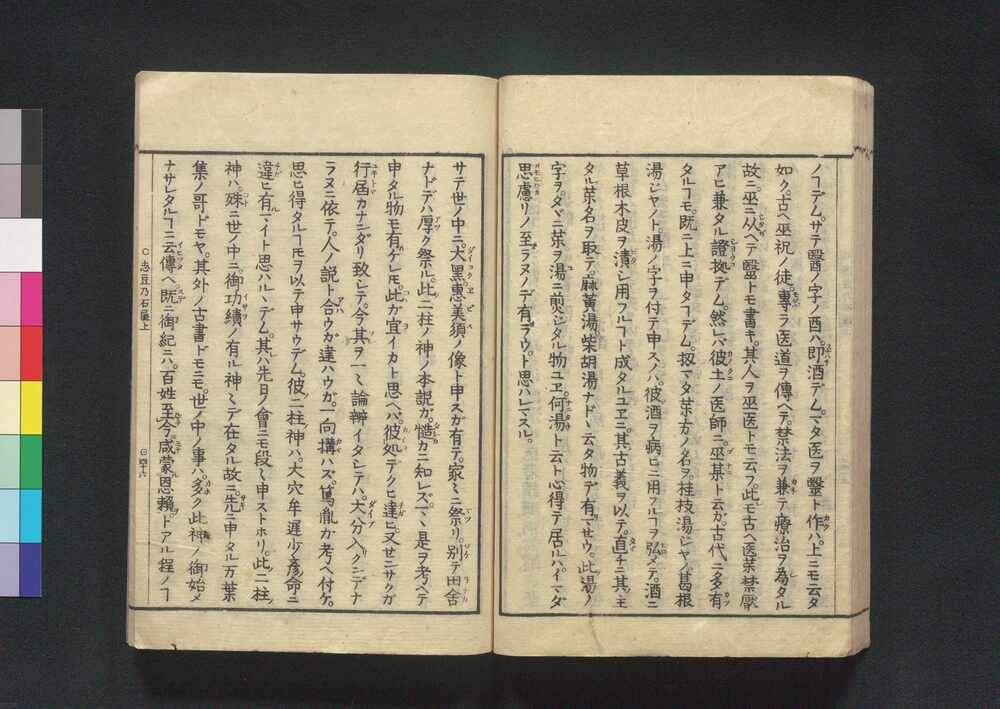 ノヿデム。サテ醫ノ字ノ酉ハ。即酒デム。マタ医ヲ毉ト作ハ。上ニモ云タ
如ク。古ヘ巫祝ノ徒。專ラ医道ヲ傳ヘテ。禁法ヲ兼テ療治ヲ為タル
故ニ。巫ニ从ヘテ毉トモ書キ。其人ヲ巫医トモ云フ。此モ古ヘ医藥禁厭
アヒ兼タル證拠デム。然レバ彼土ノ医師ニ。巫某ト云ガ。古代ニ多有
タルヿモ。既ニ上ニ申タヿデム。扨マタ藥方ノ名ヲ。桂枝湯ジヤノ。葛根
湯ジヤノト。湯ノ字ヲ付テ申スノハ。彼酒ヲ病ヒニ用フルヿヲ弘メテ。酒ニ
草根木皮ヲ漬シ用フルヿト成タルユヱニ。其古義ヲ以テ。直チニ其主
タル藥名ヲ取テ。麻黄湯。柴胡湯ナドヽ云タ物デ有マセウ。此湯ノ
字ヲ。タヾニ藥ヲ湯ニ煎ジタル物ユヱ。何湯ト云ト心得テ居ルハ。イマダ
思慮リノ至ラヌノデ有ラウト思ハレマスル。
サテ世ノ中ニ。大黒惠美須ノ像ト申スガ有テ。家〻ニ祭リ。別テ田舎
ナドデハ厚ク祭ル。此二柱ノ神ノ本説ガ。慥カニ知レズ。マヽ是ヲ考ヘテ
申タル物モ有ケレモ。此ガ宜イカト思ヘバ。彼処デクヒ違ヒ。又セニサクガ
行屆カナンダリ致シテ。今其ヲ一〻論辨イタシテハ。大分入クンデナ
ラヌニ依テ。人ノ説ト合ウガ違ハウガ。一向構ハズ。篤胤ガ考ヘ付ケ。
思ヒ得タルヿヲ以テ申サウデム。彼二柱神ハ。大穴牟遅少彦命ニ
違ヒ有マイト思ハルヽデム。其ハ先日ノ會ニモ段〻申ストホリ。此二柱ノ
神ハ。殊ニ世ノ中ニ。御功績ノ有ル神〻デ在タル故ニ。先ニ申タル万葉
集ノ哥ドモヤ。其外ノ古書ドモニモ。世ノ中ノ事ハ。多ク此神ノ御始メ
ナサレタルヿニ云傳ヘ。既ニ御紀ニハ。百姓至今咸蒙恩頼。トアル程ノヿ
○志豆乃石屋上
○四十六